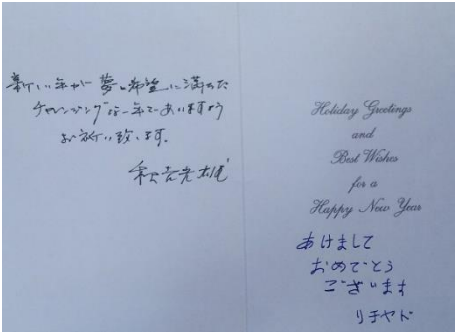 新しい年が夢と希望に満ちた
チャレンジングな一年でありますよう
お祈り致します。
Holiday Greetings
and
Best Wishes
for a
Happy New Year
あけまして
おめでとう
ございます
リチヤド